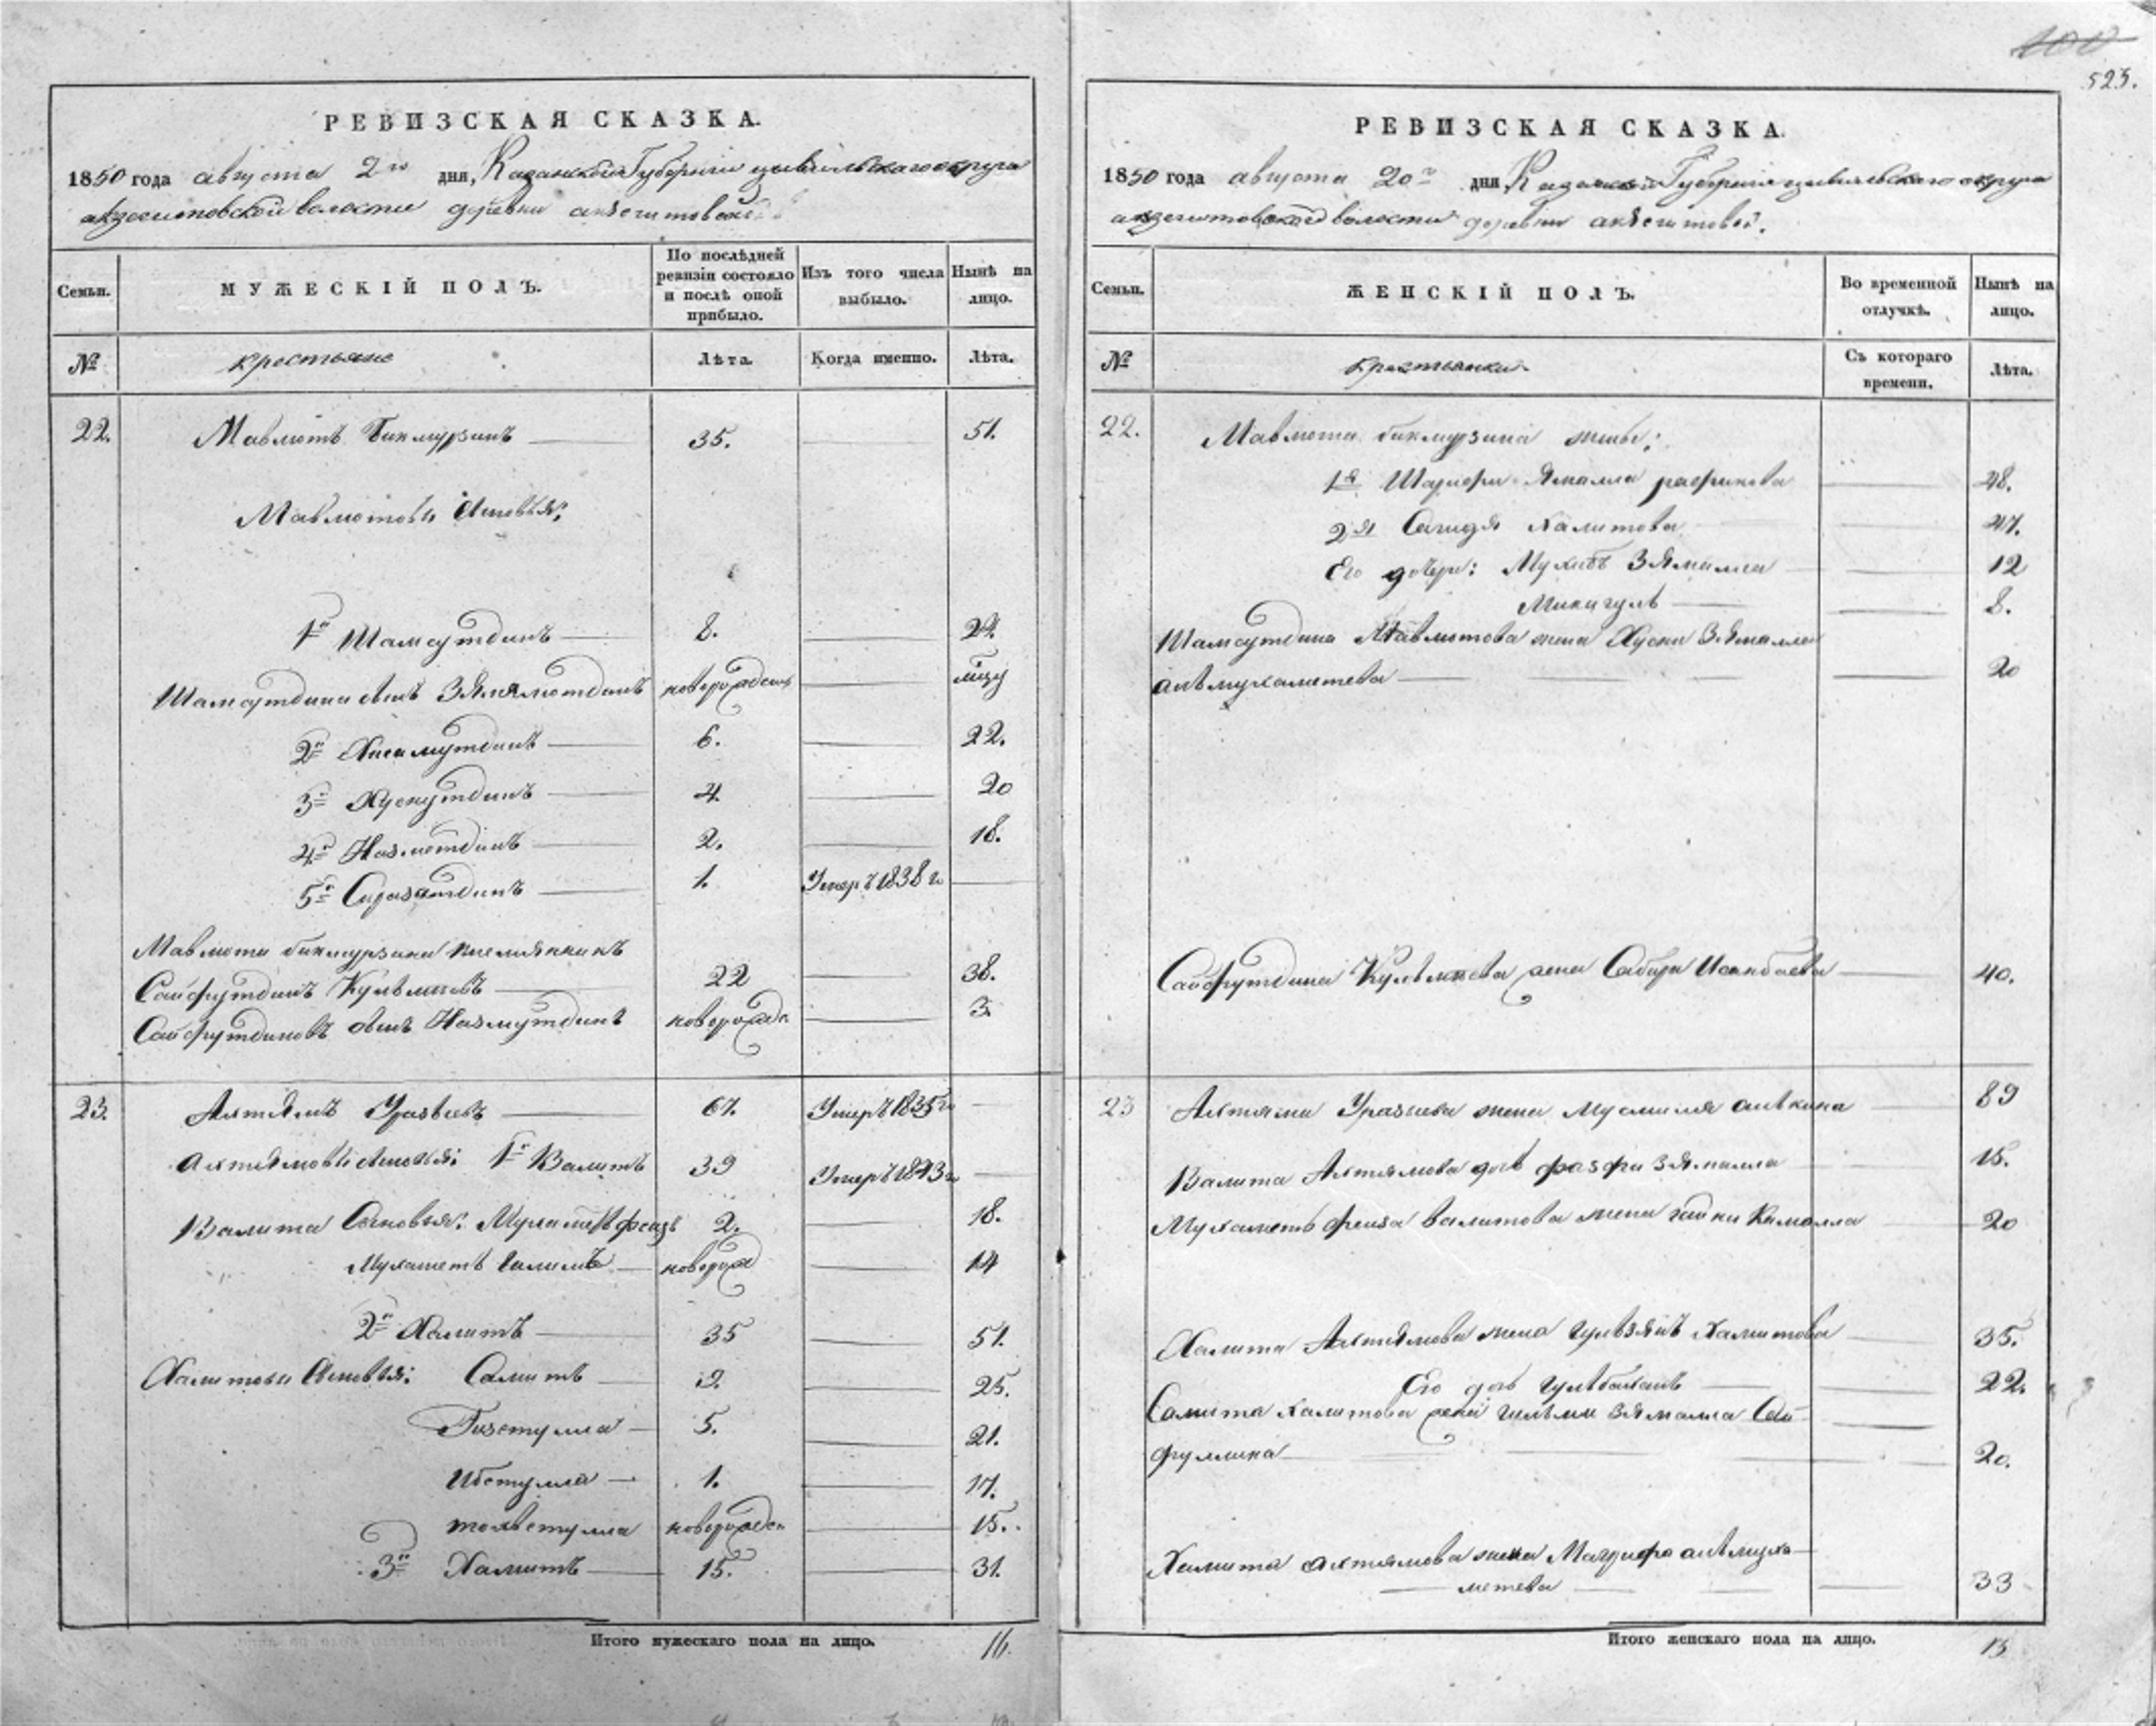 100
523.
РЕВИЗСКАЯ СКАЗКА.
1850 года августа 20го дня, Казанской Губернии цивильского округа
акзегитовской волости деревни акзегитовой
Семьи.
МУЖЕСКІЙ ПОЛЪ.
По послѣдней ревизіи состояло и послѣ оной прибыло.
Изъ того числа выбыло.
Нынѣ на лицо.
№
крестьяне
Лѣта.
Когда именно.
Лѣта.
22. Мавлютъ Бикмурзинъ 35. 51.
Мавлютовы Сыновья:
1й Шамсутдинъ 8. 24.
Шамсутдина сынъ Зялялютдинъ новорожденъ
2й Хисамутдинъ 6. 22.
3й Хуснутдинъ 4. 20
4й Назмютдинъ 2. 18.
5й Сиразитдинъ 1. Умеръ 1838 го
Мавлюта бикмурзина племянникъ
Сайфутдинъ 22 38.
Сайфутдиновъ сынъ Назмутдинъ новорожде 3.
23. Ахтямъ Уразаевъ 67. Умеръ 1835 го
Ахтямовы сыновья: 1й Валитъ 39 Умеръ 1843 го
Валита Сыновья: Мухаметь феизъ 2. 18.
Мухаметь Галимъ новорож 14
2й Халитъ 35 51.
Халитовы Сыновья: Самитъ 9. 25.
Гизетулла 5. 21.
Ибетулла 1. 17.
новорожден 15.
3й Хамитъ 15. 31.
Итого мужескаго пола на лицо. 16.
РЕВИЗСКАЯ СКАЗКА.
1850 года августа 20го дня Казанской Губернии цивильского округа
акзегитовской волости деревни акзегитовой.
Семьи.
ЖЕНСКІЙ ПОЛЪ.
Во временной отлучкѣ.
Нынѣ на лицо.
№
крестьянки
Съ котораго времени.
Лѣта.
22. Мавлюта бикмурзина жены:
1я Ямалиа рафикова 48.
2я Сагидя Халитова 47.
Его дочери: Мухибъ Зямалиа 12
Минигуль 8.
Шамсутдина Мавлютова жена Хусни Зямалиа
альмухаметева 20
Сайфутдина жена Сабира Исянбаева 40.
23 Ахтяма Уразаева жена Муслимя алькина 89
Валита Ахтямова дочь Зямалиа 15.
Мухаметь феиза валитова жена Камалла 20
Халита Ахтямова жена гульзянъ Халитова 35.
Его дочь 22.
Самита Халитова жена гильми зямалиа Сай
фуллина 20.
Хамита ахтямова жена альмуха
метева 33
Итого женскаго пола на лицо. 13